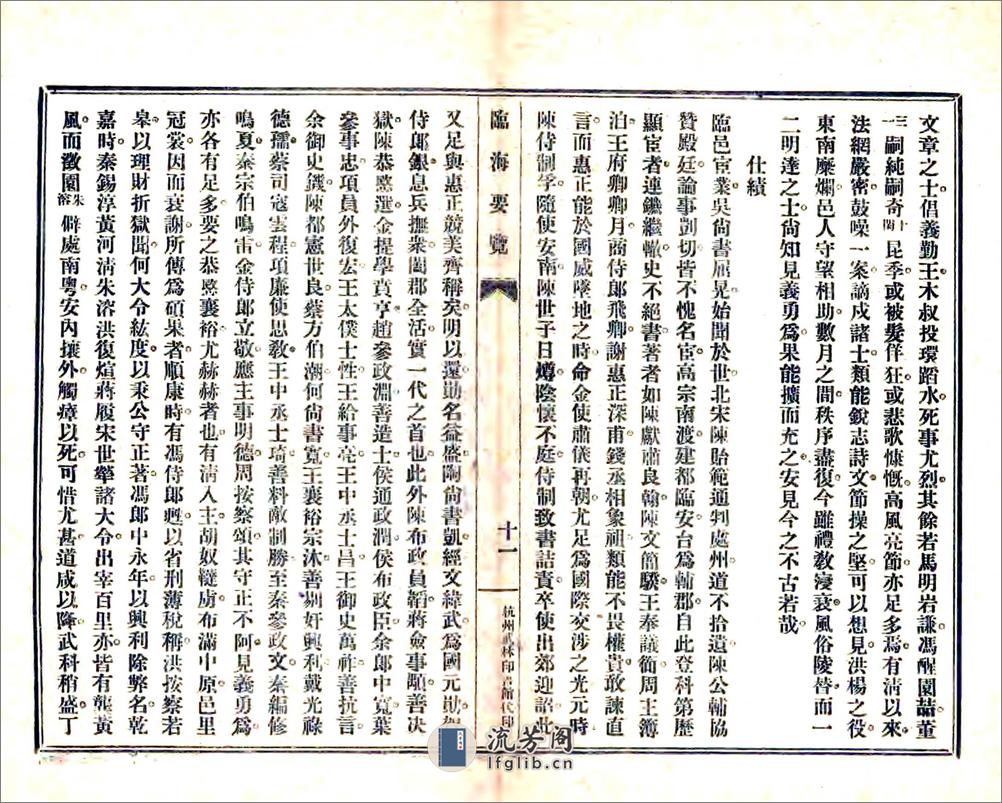 文章之士倡義勤王木叔投環蹈水死事尤烈其餘若馬明岩謙馮醒園喆董
三一嗣純嗣奇十閣昆季或被髮佯狂或悲歌慷慨高風亮節亦足多焉有清以來
法網嚴密鼓噪一案謫戍諸士類能銳志詩文節操之堅可以想見洪楊之役
東南糜爛邑人守望相助數月之間秩序盡復今雖禮教寖衰風俗陵替而一
二明達之士尚知見義勇爲果能擴而充之安見今之不古若哉
仕績
臨邑宦業吳尚書屈晃始聞於世北宋陳貽範通判處州道不拾遺陳公輔協
贊殿廷論事剴切皆不愧名臣高宗南渡建都臨安台爲輔郡自此登科第歷
顯宦者連鑣繼轍史不絕書著者如陳獻肅良翰陳文簡騤王奉議衟周王簿
泊王府卿卿月商侍郎飛卿謝惠正深甫錢丞相象祖類能不畏權貴敢諫直
言而惠正能於國威墜地之時命金使肅儀再朝尤足爲國際交涉之光元時
陳侍制孚隨使安南陳世子日燇陰懷不庭侍制致書詰責卒使出郊迎詔此
臨海要覽
十一
杭州武林印書館代印
又足與惠正競美齊稱矣明以還勛名益盛陶尚書凱經文緯武爲國元勛
侍郎銀息兵撫衆閩郡全活實一代之首也此外陳布政員韜蔣僉事顒善决
獄陳恭愍選金提學賁亨趙參政淵善造士侯通政潤侯布政臣余郎中寬葉
參事忠項員外復宏王太僕士性王給事亮王中丞士昌王御史萬祚善抗言
余御史鐖陳都憲世良蔡方伯潮何尚書寬王襄裕宗沐善剔奸興利戴光祿
德孺蔡司寇雲程項廉使思教王中丞士琦善料敵制勝至秦參政文秦編修
鳴夏秦宗伯鳴雷金侍郎立敬應主事明德周按察頌其守正不阿見義勇爲
亦各有足多要之恭愍襄裕尤赫赫者也有淸入主胡奴韃虜布滿中原邑里
冠裳因而衰謝所傳爲碩果者順康時有馮侍郎甦以省刑薄稅稱洪按察若
皋以理財折獄聞何大令紘度以秉公守正著馮郎中永年以興利除弊名乾
嘉時秦錫淳黃河清朱溶洪復煊蔣履宋世犖諸大令出宰百里亦皆有龔黃
風而澂園朱溶僻處南粵安內攘外觸瘴以死可惜尤甚道咸以降武科稍盛丁
流芳阁
lfglib.cn